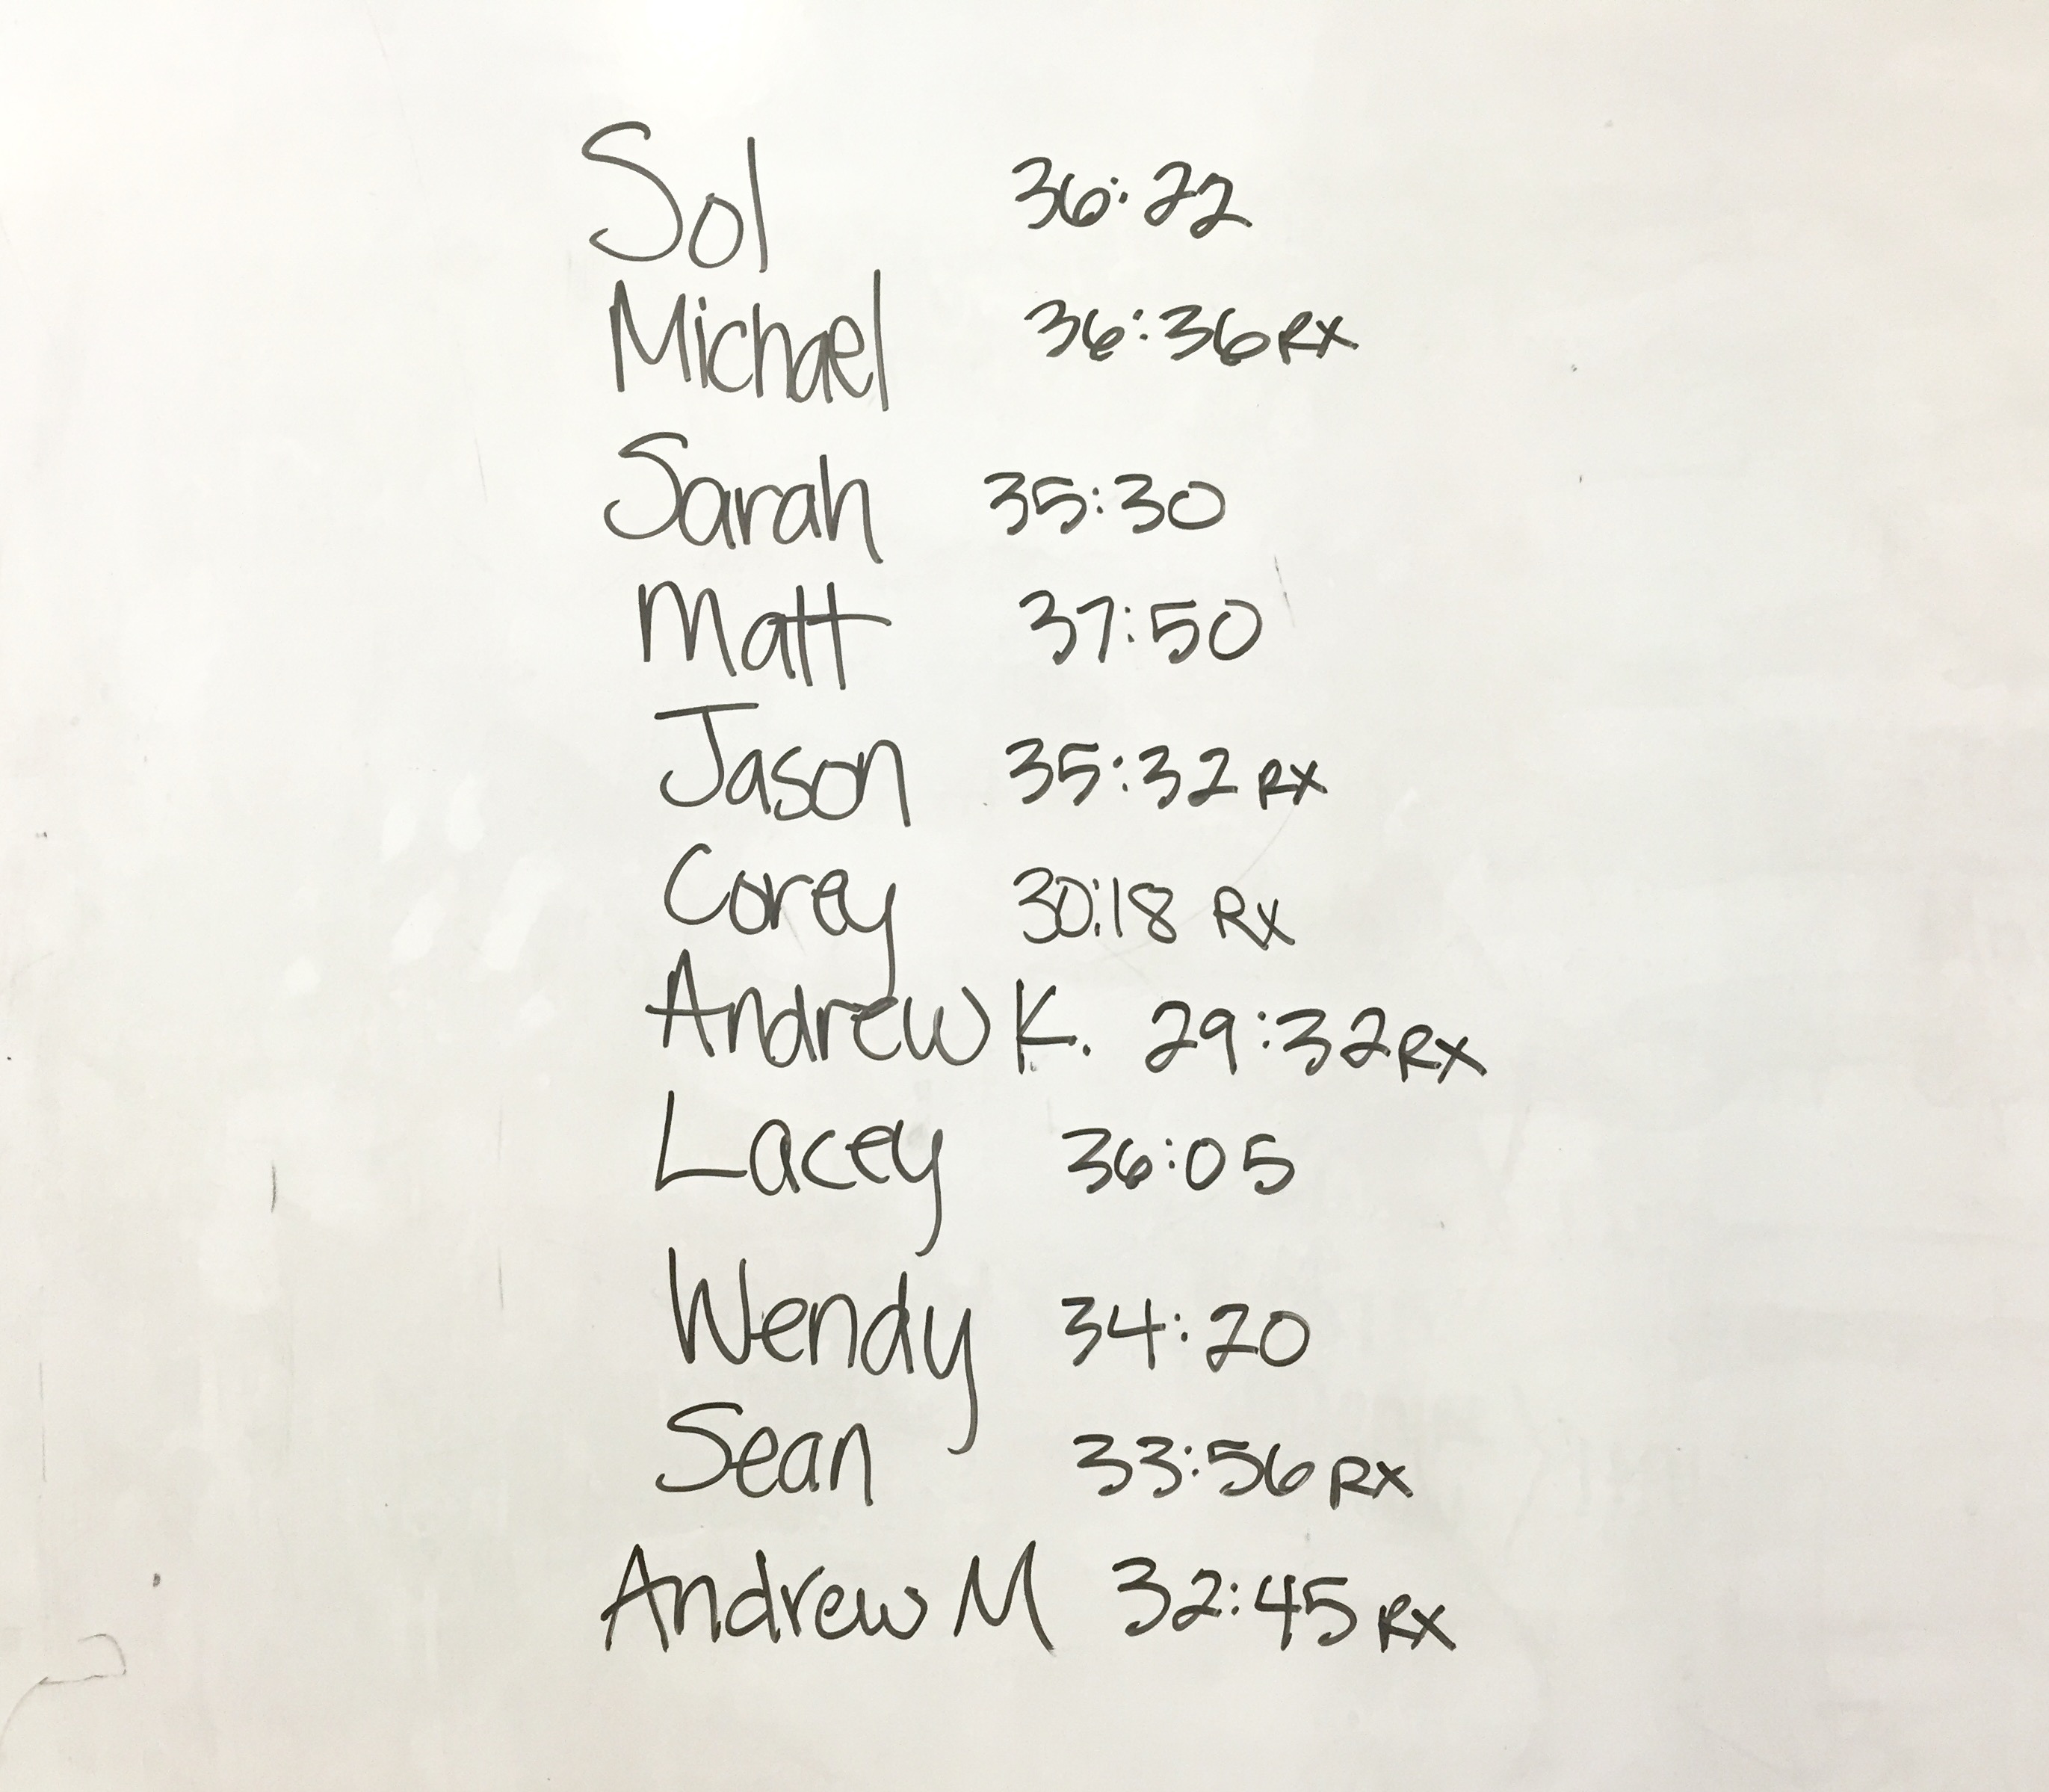 Sol 36:22
Michael 36:36 RX
Sarah 35:30
Matt 37:50
Jason 35:32 RX
Corey 30:18 RX
Andrew K. 29:32 RX
Lacey 36:05
Wendy 34:20
Sean 33:56 RX
Andrew M 32:45 RX